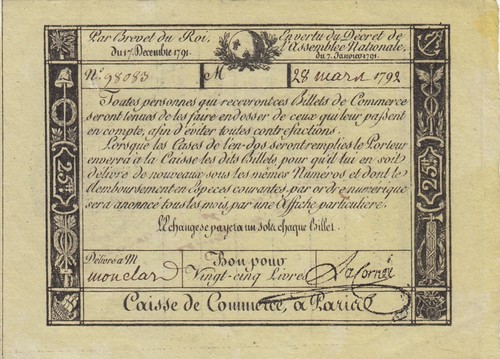 Par Brevet du Roi, En vertu du Décret de
du 17. Decembre 1791. l'Assemblée Nationale,
du 7. Janvier 1791.
N.° 98083 M 28 mars 1792
Toutes personnes qui recevront ces Billets de Commerce
seront tenues de les faire endosser de ceux qui leur passent
en compte, afin d'éviter toutes contrefactions.
Lorsque les Cases de l'en-dos seront remplies le Porteur
enverra à la Caisse les dits Billets, pour qu'il lui en soit
délivré de nouveaux sous les mêmes Numeros et dont le
Remboursement en Especes courantes par ordre numerique
sera anoncé tous les mois par une Affiche particuliere.
L'Echange se payera un sol à chaque Billet.
25 ₶ 25 ₶
Délivré à M Bon pour
monclar Vingt-cinq Livres LaCornée
Caisse de Commerce, à Paris